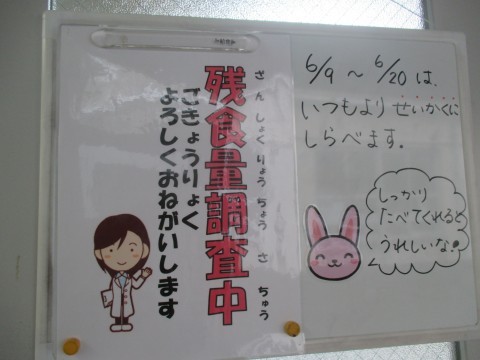 残食量調査中
ざんしょくりょうちょうさちゅう
ごきょうりょく
よろしくおねがいします
6/9～6/20は、
いつもよりせいかくに
しらべます。
しっかり
たべてくれると
うれしいな!